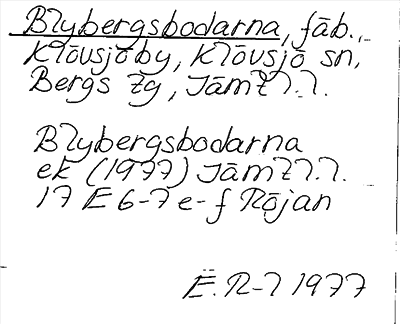 Blybergsbodarna, fäb.,
Klövsjö by, Klövsjö sn,
Bergs tg, Jämtl.l.
Blybergsbodarna
ek (1977) Jämtl.l.
17 E 6-7 e-f Röjan
E.R-l 1977